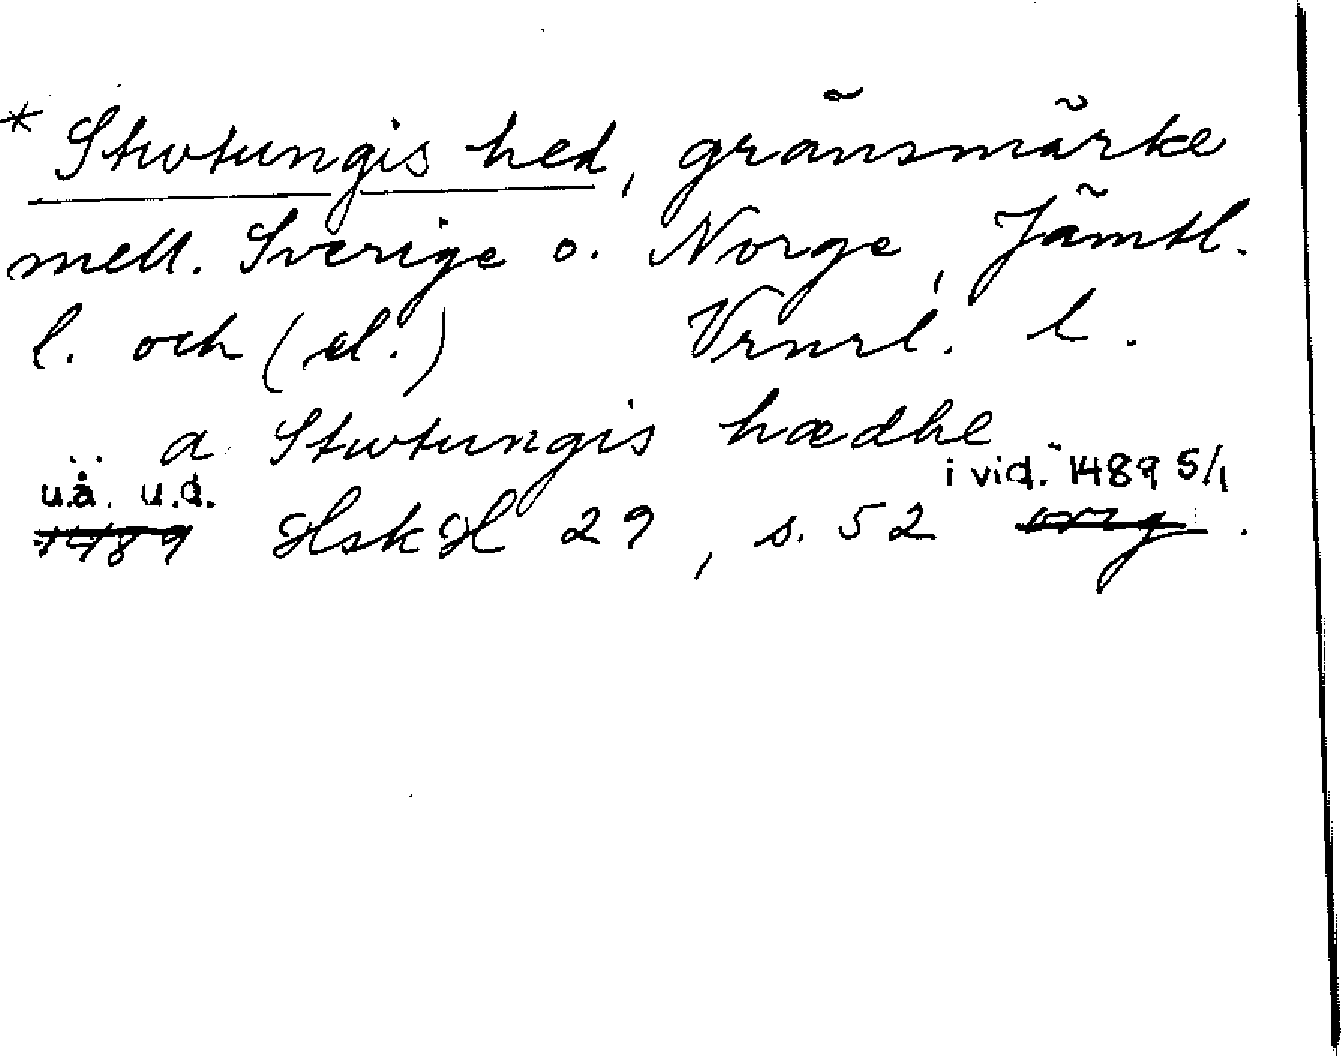 * Stwtungis hed, gränsmärke
mell. Sverige o. Norge, Jämtl.
l. och (el.) Vrmrl. l.
.. a Stwtungis hædhe
u.å. u.d. i vid. 1489 5/1
1489 HskH 29, s. 52 orig.